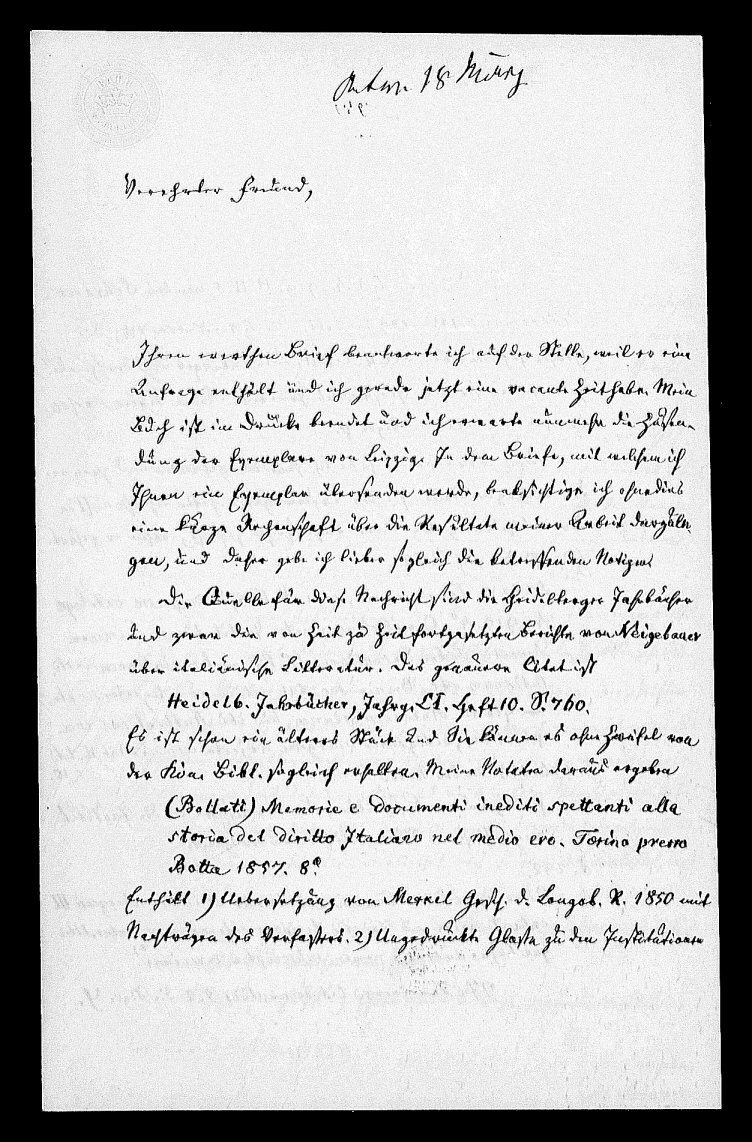 18 März
Verehrter Freund,
Ihren werthen Brief beantworte ich auf der Stelle, weil er eine
Anfrage enthält und ich gerade jetzt eine vacante Zeit habe. Mein
Buch ist im Drucke beendet und ich erwarte nunmehr die Zusen-
dung der Exemplare von Leipzig. In dem Briefe, mit welchem ich
Ihnen ein Exemplar übersenden werde, beabsichtige ich ohnedies
eine kurze Rechenschaft über die Resultate meiner Arbeit darzule-
gen, und daher gebe ich lieber sogleich die betreffenden Notizen.
Die Quelle für diese Nachricht sind die Heidelberger Jahrbücher
und zwar die von Zeit zu Zeit fortgesetzten Berichte von Neigebauer
über italiänische Litteratur. Das genauere Citat ist
Heidelb. Jahrbücher, Jahrg. LI. Heft 10. S. 760.
Es ist schon ein älteres Stück und Sie können es ohne Zweifel von
der Kön. Bibl. sogleich erhalten. Meine Notaten daraus ergeben
(Bollati) Memorie e documenti inediti spettanti alla
storia del diritto Italiano nel medio evo. Torino presso
Botta 1857. 8°
Enthält 1) Uebersetzung von Merkel Gesch. d. Langob. R. 1850 mit
Nachträgen des Verfassers. 2) Ungedruckte Glosse zu den Institutionen